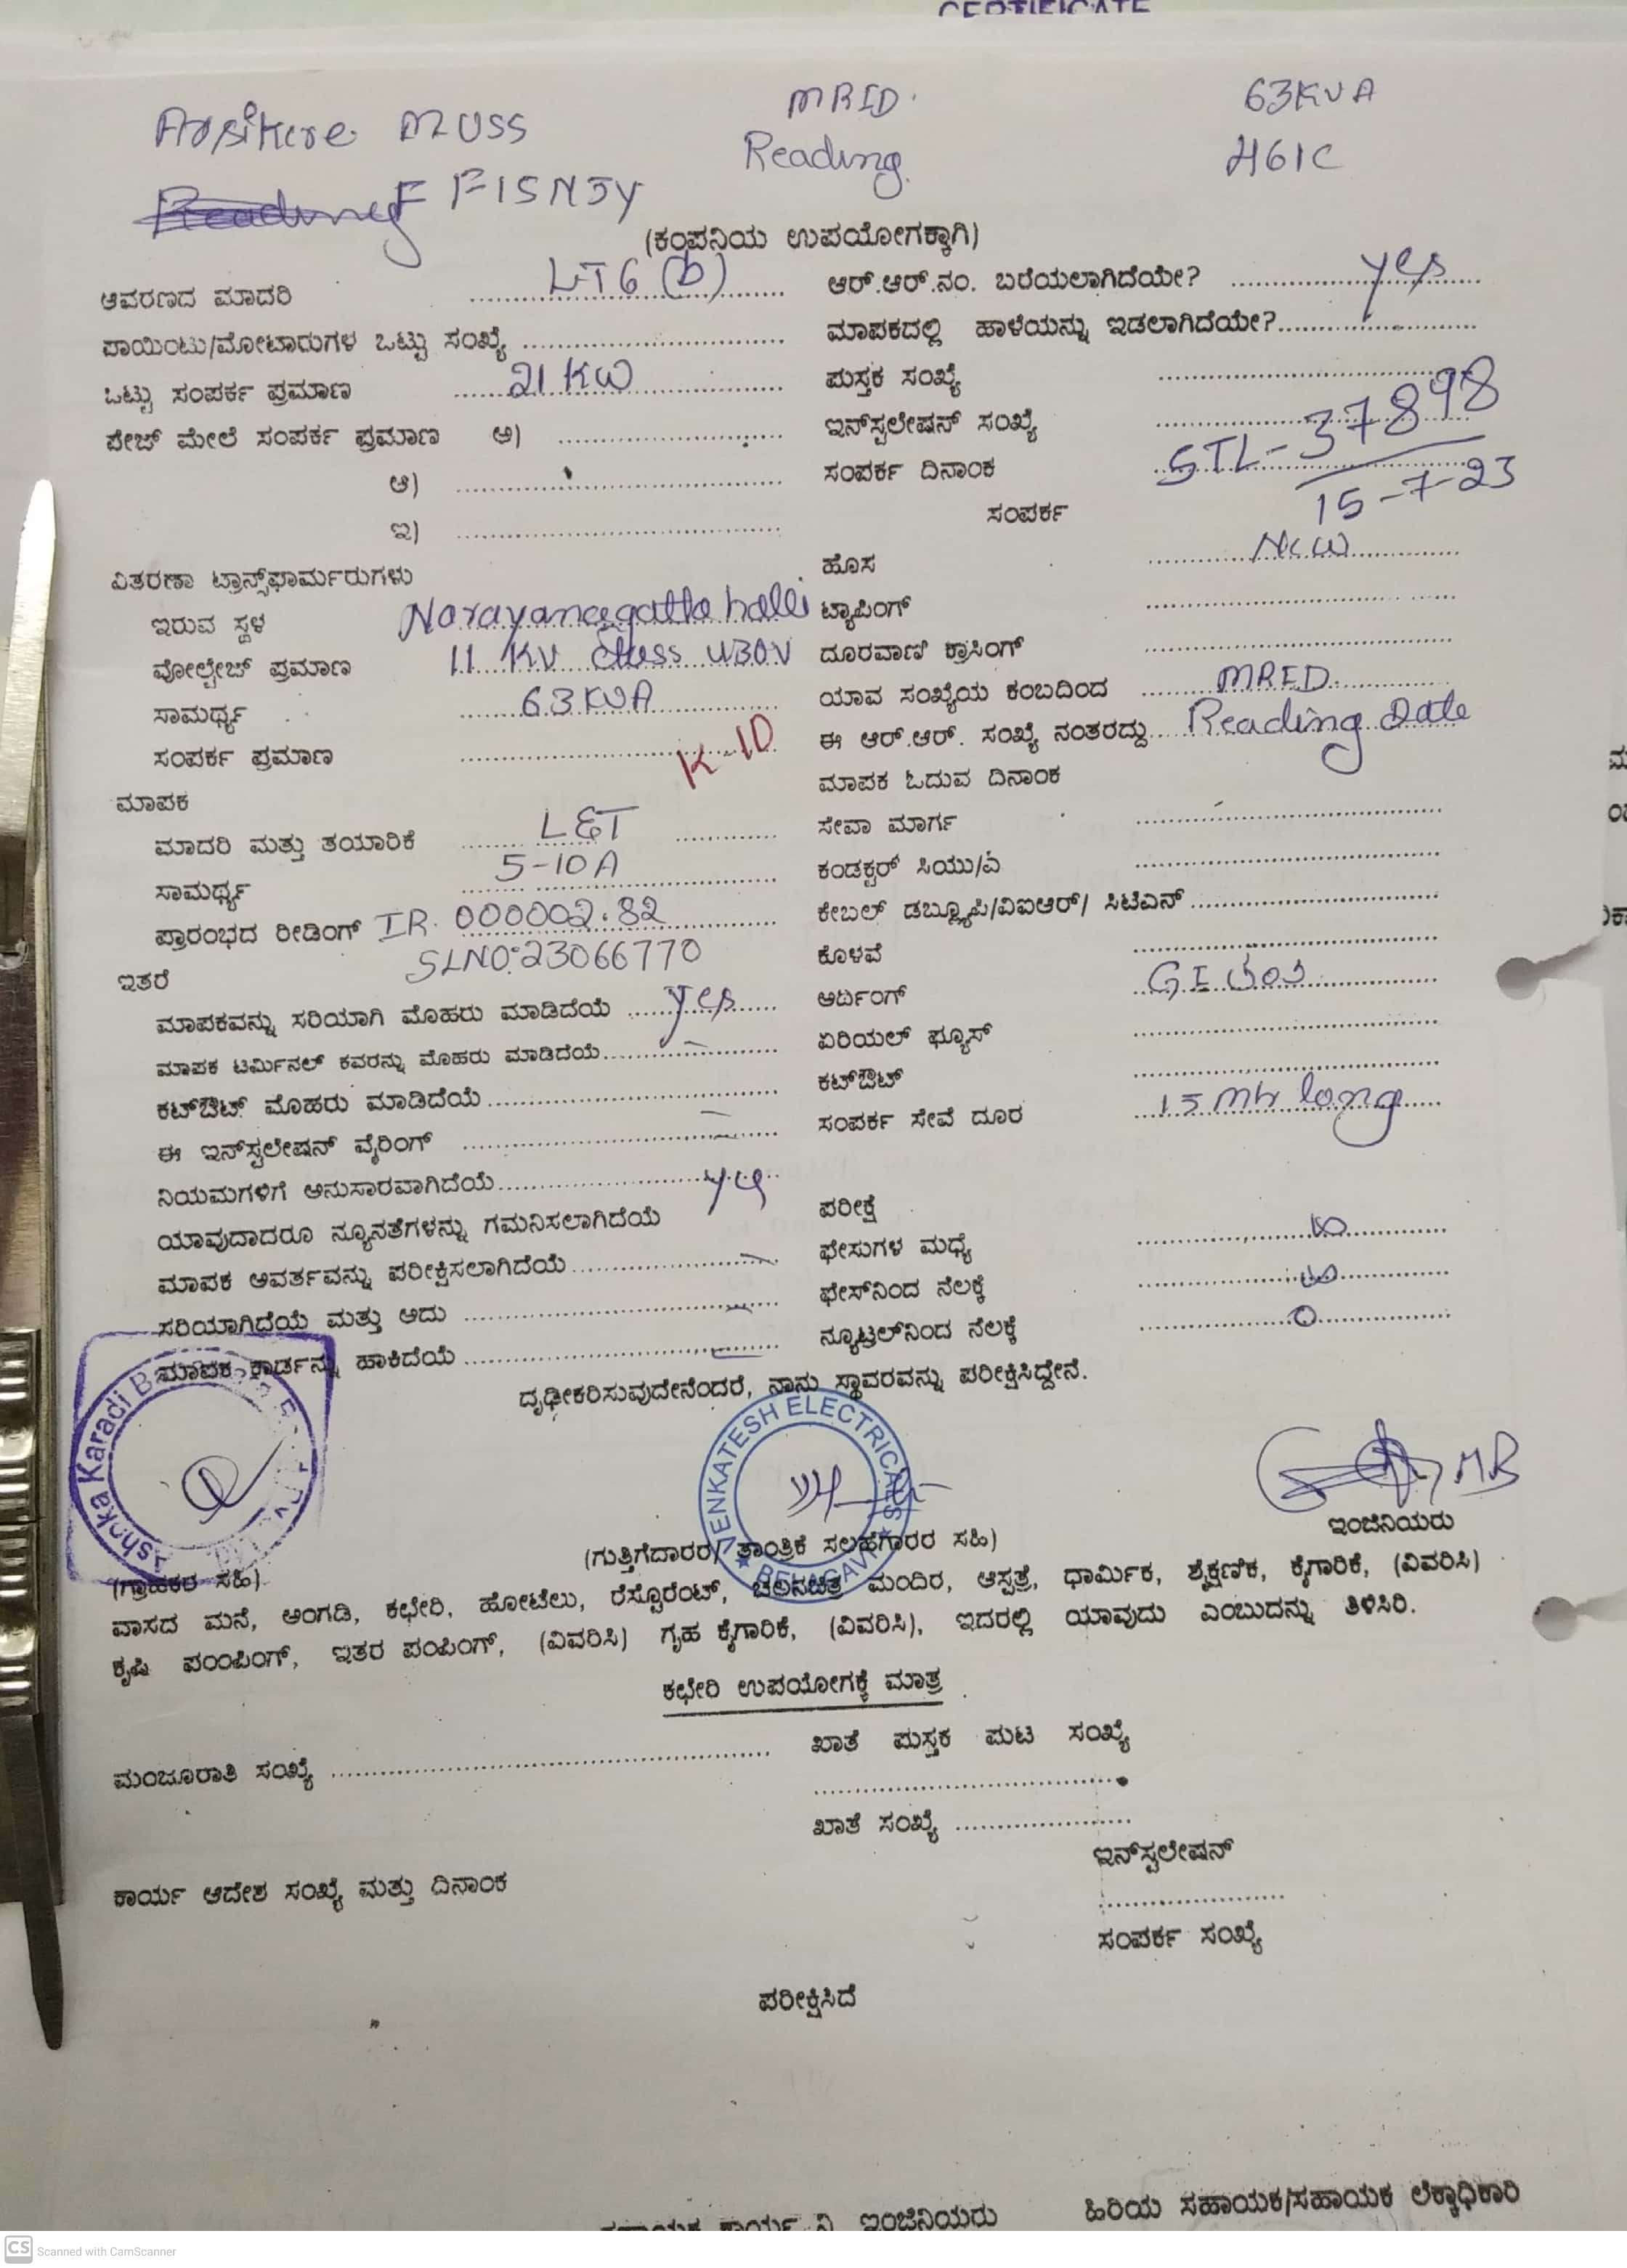 CERTIFICATE
Arsikere MUSS
MRID.
Reading
63KVA
461C
F F15NJY
(ಕಂಪನಿಯ ಉಪಯೋಗಕ್ಕಾಗಿ)
ಆವರಣದ ಮಾದರಿ LT6 (b)
ಪಾಯಿಂಟು/ಮೋಟಾರುಗಳ ಒಟ್ಟು ಸಂಖ್ಯೆ
ಒಟ್ಟು ಸಂಪರ್ಕ ಪ್ರಮಾಣ 21 KW
ಪೇಜ್ ಮೇಲೆ ಸಂಪರ್ಕ ಪ್ರಮಾಣ ಅ)
ಆ)
ಇ)
ವಿತರಣಾ ಟ್ರಾನ್ಸ್‌ಫಾರ್ಮರುಗಳು
ಇರುವ ಸ್ಥಳ Narayanagatta halli
ವೋಲ್ಟೇಜ್ ಪ್ರಮಾಣ 11 KV class
ಸಾಮರ್ಥ್ಯ 63 KVA
ಸಂಪರ್ಕ ಪ್ರಮಾಣ K-10
ಮಾಪಕ
ಮಾದರಿ ಮತ್ತು ತಯಾರಿಕೆ L&T
ಸಾಮರ್ಥ್ಯ 5-10 A
ಪ್ರಾರಂಭದ ರೀಡಿಂಗ್ IR. 000002.82
SLNO:23066770
ಇತರೆ
ಮಾಪಕವನ್ನು ಸರಿಯಾಗಿ ಮೊಹರು ಮಾಡಿದೆಯೆ yes
ಮಾಪಕ ಟರ್ಮಿನಲ್ ಕವರನ್ನು ಮೊಹರು ಮಾಡಿದೆಯೆ
ಕಟ್‌ಔಟ್ ಮೊಹರು ಮಾಡಿದೆಯೆ
ಈ ಇನ್‌ಸ್ಟಲೇಷನ್ ವೈರಿಂಗ್
ನಿಯಮಗಳಿಗೆ ಅನುಸಾರವಾಗಿದೆಯೆ
ಯಾವುದಾದರೂ ನ್ಯೂನತೆಗಳನ್ನು ಗಮನಿಸಲಾಗಿದೆಯೆ
ಮಾಪಕ ಆವರ್ತವನ್ನು ಪರೀಕ್ಷಿಸಲಾಗಿದೆಯೆ
ಸರಿಯಾಗಿದೆಯೆ ಮತ್ತು ಅದು
ಮಾಪಕ ಕಾರ್ಡನ್ನು ಹಾಕಿದೆಯೆ
ಆರ್.ಆರ್.ನಂ. ಬರೆಯಲಾಗಿದೆಯೇ? yes
ಮಾಪಕದಲ್ಲಿ ಹಾಳೆಯನ್ನು ಇಡಲಾಗಿದೆಯೇ?
ಪುಸ್ತಕ ಸಂಖ್ಯೆ
ಇನ್‌ಸ್ಟಲೇಷನ್ ಸಂಖ್ಯೆ
ಸಂಪರ್ಕ ದಿನಾಂಕ STL-37898
15-7-23
ಸಂಪರ್ಕ
ಹೊಸ New
ಟ್ಯಾಪಿಂಗ್
ದೂರವಾಣಿ ಕ್ರಾಸಿಂಗ್
ಯಾವ ಸಂಖ್ಯೆಯ ಕಂಬದಿಂದ MRID.
ಈ ಆರ್.ಆರ್. ಸಂಖ್ಯೆ ನಂತರದ್ದು Reading Date
ಮಾಪಕ ಓದುವ ದಿನಾಂಕ
ಸೇವಾ ಮಾರ್ಗ
ಕಂಡಕ್ಟರ್ ಸಿಯು/ಎ
ಕೇಬಲ್ ಡಬ್ಲ್ಯೂಪಿ/ವಿಐಆರ್/ ಸಿಟಿಎನ್
ಕೊಳವೆ
ಅರ್ದಿಂಗ್ GI
ಏರಿಯಲ್ ಫ್ಯೂಸ್
ಕಟ್‌ಔಟ್
ಸಂಪರ್ಕ ಸೇವೆ ದೂರ 15 Mtr long
ಪರೀಕ್ಷೆ
ಫೇಸುಗಳ ಮಧ್ಯೆ
ಫೇಸ್‌ನಿಂದ ನೆಲಕ್ಕೆ
ನ್ಯೂಟ್ರಲ್‌ನಿಂದ ನೆಲಕ್ಕೆ 0
ದೃಢೀಕರಿಸುವುದೇನೆಂದರೆ, ನಾನು ಸ್ಥಾವರವನ್ನು ಪರೀಕ್ಷಿಸಿದ್ದೇನೆ.
VENKATESH ELECTRICALS
BELAGAVI
Karadi
MB
ಇಂಜಿನಿಯರು
(ಗುತ್ತಿಗೆದಾರರ/ ತಾಂತ್ರಿಕೆ ಸಲಹೆಗಾರರ ಸಹಿ)
(ಗ್ರಾಹಕರ ಸಹಿ)
ವಾಸದ ಮನೆ, ಅಂಗಡಿ, ಕಛೇರಿ, ಹೋಟೆಲು, ರೆಸ್ಟೊರೆಂಟ್, ಚಲನಚಿತ್ರ ಮಂದಿರ, ಆಸ್ಪತ್ರೆ, ಧಾರ್ಮಿಕ, ಶೈಕ್ಷಣಿಕ, ಕೈಗಾರಿಕೆ, (ವಿವರಿಸಿ)
ಕೃಷಿ ಪಂಂಪಿಂಗ್, ಇತರ ಪಂಪಿಂಗ್, (ವಿವರಿಸಿ) ಗೃಹ ಕೈಗಾರಿಕೆ, (ವಿವರಿಸಿ), ಇದರಲ್ಲಿ ಯಾವುದು ಎಂಬುದನ್ನು ತಿಳಿಸಿರಿ.
ಕಛೇರಿ ಉಪಯೋಗಕ್ಕೆ ಮಾತ್ರ
ಮಂಜೂರಾತಿ ಸಂಖ್ಯೆ
ಖಾತೆ ಪುಸ್ತಕ ಪುಟ ಸಂಖ್ಯೆ
ಖಾತೆ ಸಂಖ್ಯೆ
ಇನ್‌ಸ್ಟಲೇಷನ್
ಕಾರ್ಯ ಆದೇಶ ಸಂಖ್ಯೆ ಮತ್ತು ದಿನಾಂಕ
ಸಂಪರ್ಕ ಸಂಖ್ಯೆ
ಪರೀಕ್ಷಿಸಿದೆ
ಇಂಜಿನಿಯರು
ಹಿರಿಯ ಸಹಾಯಕ/ಸಹಾಯಕ ಲೆಕ್ಕಾಧಿಕಾರಿ
CS Scanned with CamScanner